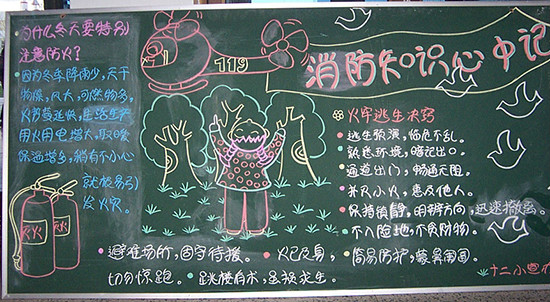 消防知识心中记
119
为什么冬天要特别
注意防火?
因为冬季降雨少,天干
物燥,风大,可燃物多,
火势蔓延快,生活生产
用火用电增大,取暖
保温增多,稍有不小心
就极易引
发火灾。
火 火
火灾逃生决窍
逃生预演,临危不乱。
熟悉环境,暗记出口。
通道出门,畅通无阻。
扑灭小火,惠及他人。
保持镇静,明辨方向,迅速撤离。
不入险地,不贪财物。
简易防护,蒙鼻匍匐。
避难场所,固守待援。
火已及身,切勿惊跑。
跳楼有术,虽损求生。
十二小宣